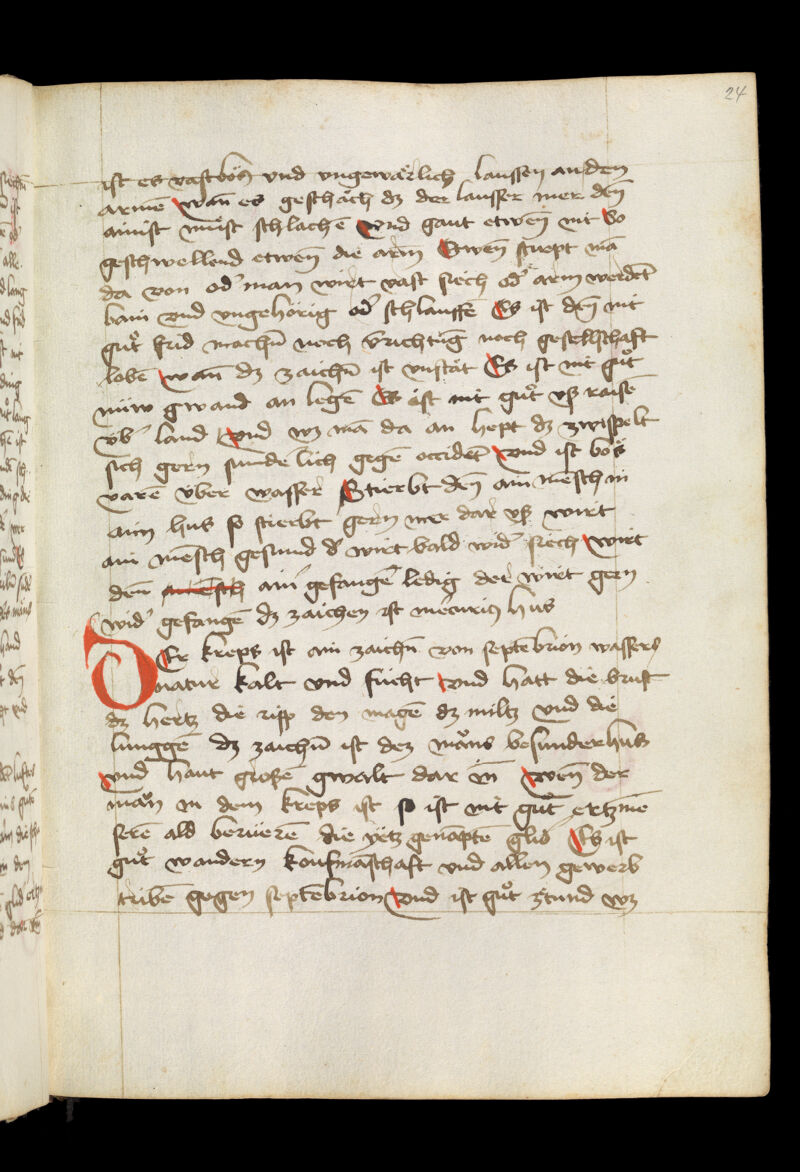 24
ist es vast bös vnd vngewärlich laussen an den
armē wan̄ es geschäch dz der lausser mer den̄
ainist müst schlachē Vnd gaut etwen̄ nit So
geschwellend etwen̄ die arm̄ Etwen̄ strept mā
da von od' man wirt vast siech od' arm werdēt
bain vnd vngehörig od' schlauffē Es ist den̄ nit
gůt frid machn̄ noch v̄richtūg noch gesellschaft
lobē wan̄ dz zaichn̄ ist vnstät Es ist nit gůt
nüw gwand an legē Es ist nit gůt vß raisē
v̈b' land Vnd wz mā da an hept dz zwispelt
sich gern sunde lich gegē occidēt Vnd ist bös
varē v̈ber wasser Stierbt den̄ ain mēsch in
aim hus so stierbt gern mer dar vß wirt
ain mēsch gesund d' wirt bald wid' siech wirt
den̄ ain gefangē ledig der wirt gern
wid' gefangē dz zaichen ist mēcurius hus
DEr kreps ist ain zaichn̄ von septēbrion wassers
natur kalt vnd fücht vnd hatt die brust
dz hertz die ripp den magē dz miltz vnd die
lunggē dz zaichn̄ ist dez mōns besunder hus
vnd haut großē gwalt dar in̄ wen̄ der
mān in dem kreps ist so ist nit gůt ertznīe
serē ald berüerē die yetz genāptē glid Es ist
gůt wandern koufmāschaft vnd allen gewerb
tribē gegen septēbrion Vnd ist gůt zetund wz